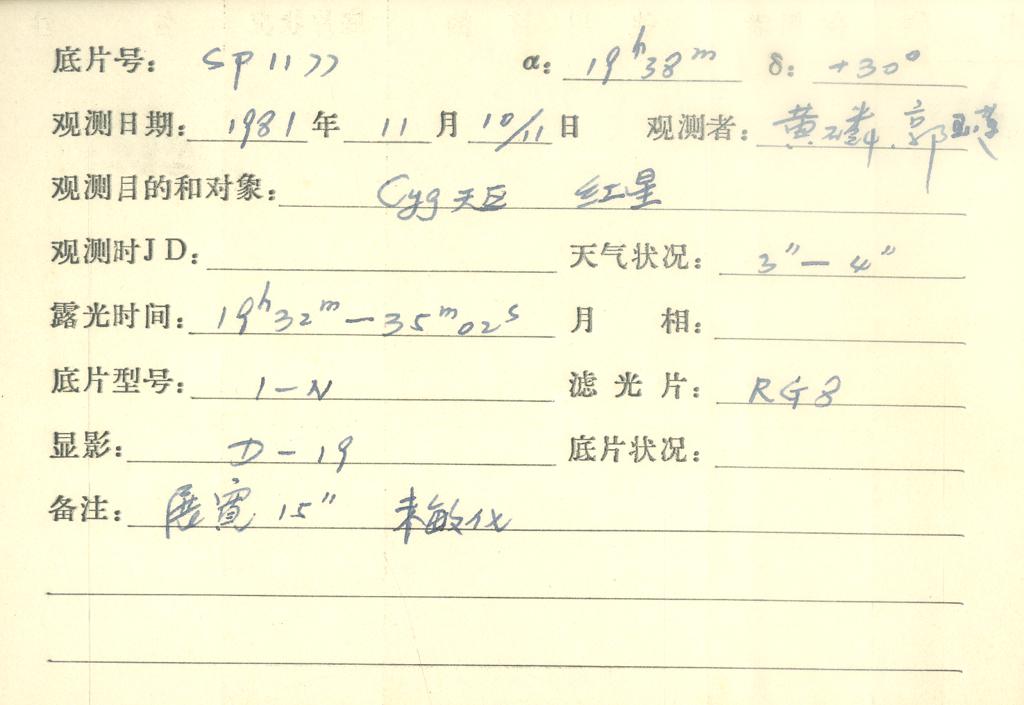 底片号: SP1177 α: 19ʰ38ᵐ δ: +30°
观测日期: 1981年 11月 10/11日 观测者: 黄磷、郭玉莲
观测目的和对象: Cyg天区 红星
观测时JD: 天气状况: 3″—4″
露光时间: 19ʰ32ᵐ—35ᵐ02ˢ 月 相:
底片型号: I-N 滤光片: RG8
显影: D-19 底片状况:
备注: 展宽 15″ 未敏化